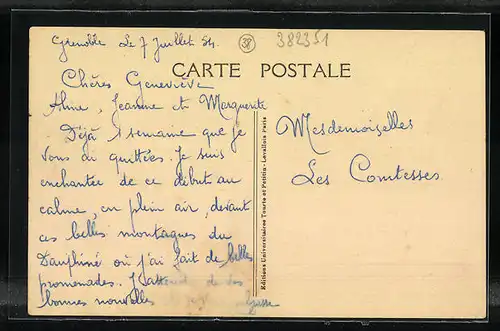 Grenoble Le 7 Juillet 54.
38
382351
CARTE POSTALE
Chères Geneviève
Aline, Jeanne et Marguerite
Déjà 1 semaine que je
vous ai quittées. Je suis
enchantée de ce début au
calme, en plein air, devant
ces belles montagnes du
Dauphiné où j'ai fait de belles
promenades. J'attend de vos
bonnes nouvelles
Editions Universitaires Tourte et Petitin - Levallois Paris
Mesdemoiselles
Les Comtesses